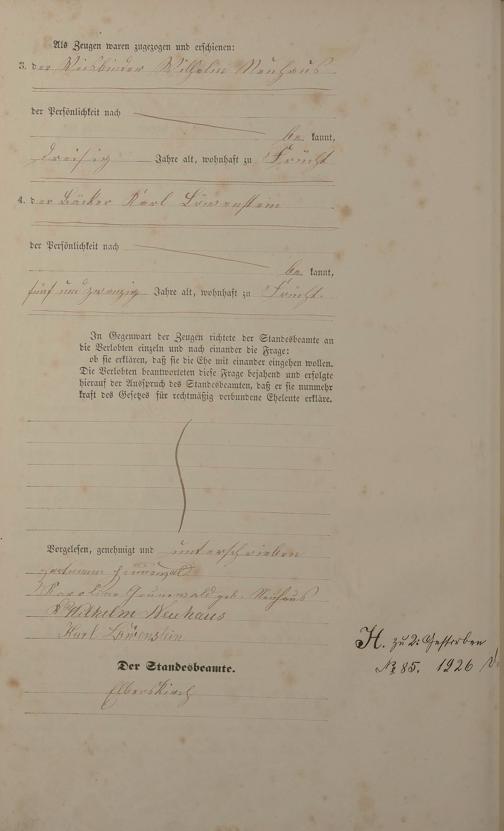 Als Zeugen waren zugezogen und erschienen:
3. der Wilhelm Neuhaus
der Persönlichkeit nach
be kannt,
dreißig Jahre alt, wohnhaft zu Frücht
4. der Bäcker Karl Löwenstein
der Persönlichkeit nach
be kannt,
fünf und zwanzig Jahre alt, wohnhaft zu Frücht.
In Gegenwart der Zeugen richtete der Standesbeamte an
die Verlobten einzeln und nach einander die Frage:
ob sie erklären, daß sie die Ehe mit einander eingehen wollen.
Die Verlobten beantworteten diese Frage bejahend und erfolgte
hierauf der Ausspruch des Standesbeamten, daß er sie nunmehr
kraft des Gesetzes für rechtmäßig verbundene Eheleute erkläre.
Vorgelesen, genehmigt und unterschrieben
Karoline Grünewald geb. Neuhaus
Wilhelm Neuhaus
Karl Löwenstein
Der Standesbeamte.
Elberskirch
H. zu 2: Gestorben
No 85. 1926